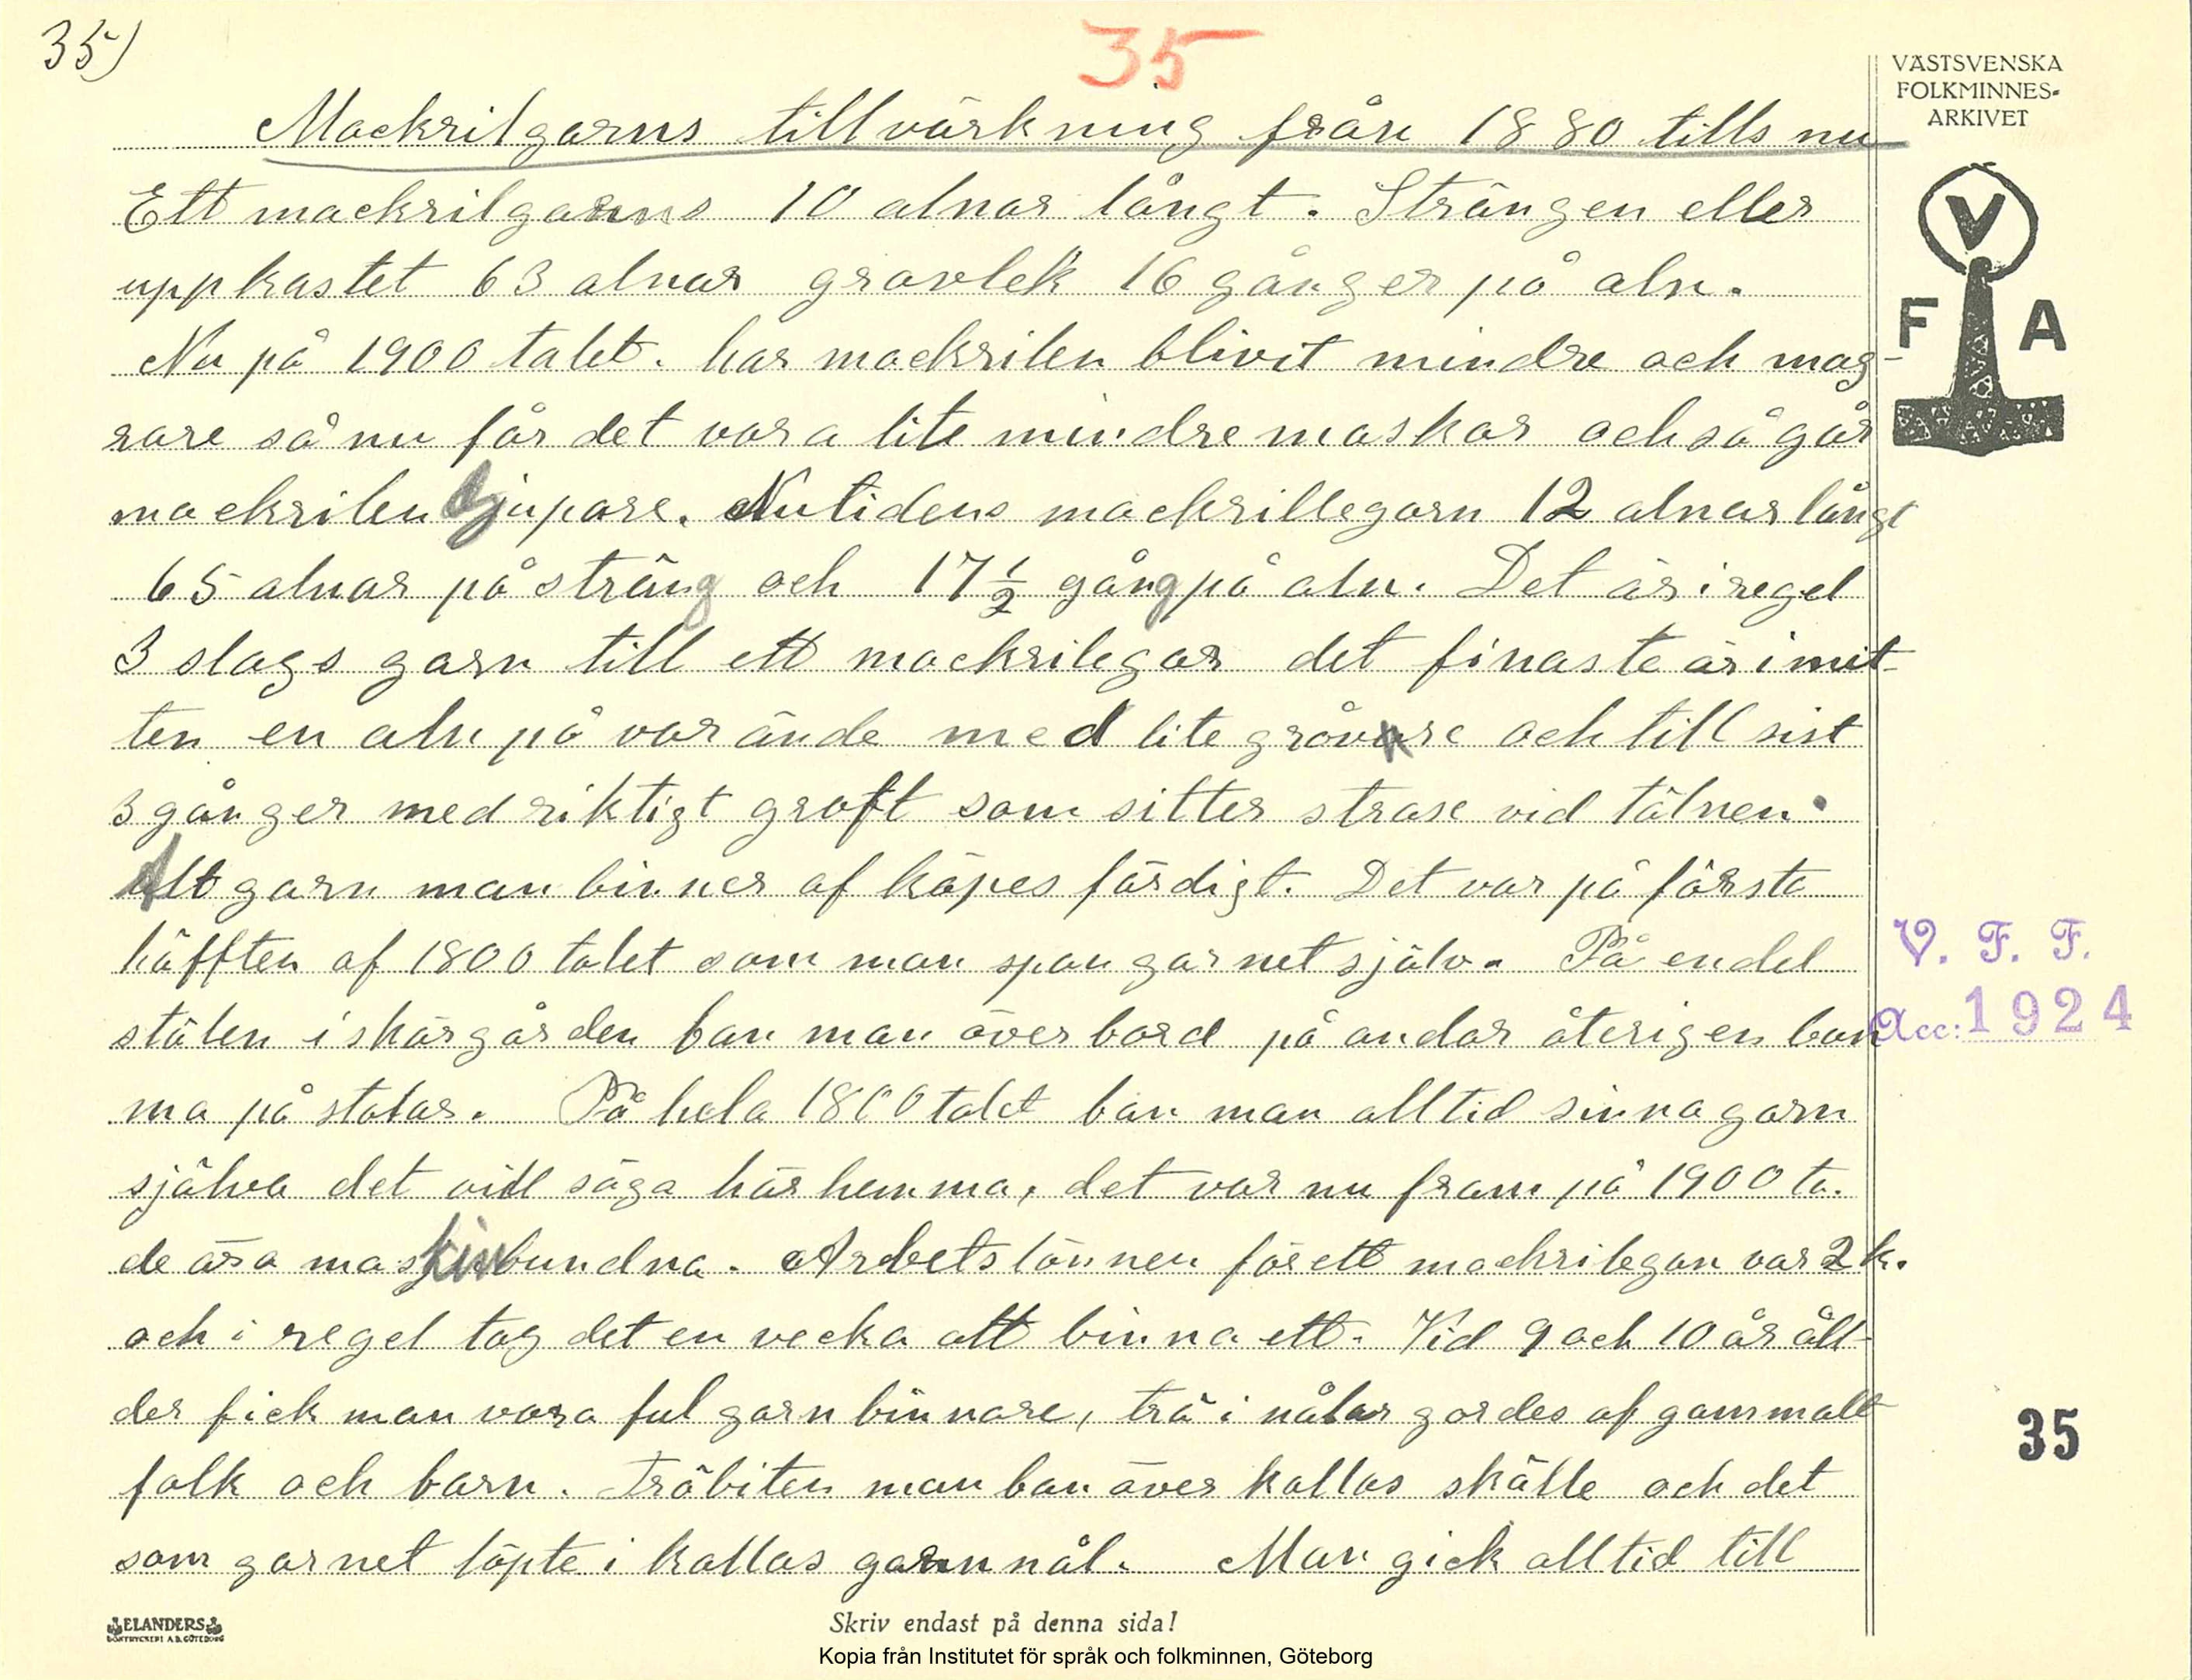 35)
35
VÄSTSVENSKA
FOLKMINNES-
ARKIVET
Mackrilgarns tillvärkning från 1880 tills nu
Ett mackrilgarns 10 alnar långt. Strängen eller
uppkastet 63 alnar grovlek 16 gånger på aln.
Nu på 1900 talet. har mackrilen blivit mindre och mag-
rare så nu får det vara lite mindre maskor och så går
mackrilen djupare. Nutidens mackrillegarn 12 alnar långt
65 alnar på sträng och 17 1/2 gång på aln. Det är i regel
3 slags garn till ett mackrilegar det finaste är i mit-
ten en aln på var ände med lite grövre och till sist
3 gånger med riktigt groft som sitter strase vid tälnen.
Allt garn man binner af köpes färdigt. Det var på första
häfften af 1800 talet som man span garnet själv. På endel
stälen i skärgården ban man över bord på andar återigen ban
ma på stolar. På hela 1800 talet ban man alltid sinna garn
själva det vill säga här hemma, det var nu fram på 1900 ta.
de ära maskinbundna. Arbetslönnen för ett mackrilegan var 2 k.
och i regel tog det en vecka att binna ett. Vid 9 och 10 år åll-
der fick man vara ful garnbinnare, trä i nålar gordes af gammalt
folk och barn. Träbiten man ban över kallas skälle och det
som garnet löpte i kallas garnnål. Man gick alltid till
V
F A
V. F. F.
Acc: 1924
35
ELANDERS
BOKTRYCKERI A.B. GÖTEBORG
Skriv endast på denna sida!
Kopia från Institutet för språk och folkminnen, Göteborg